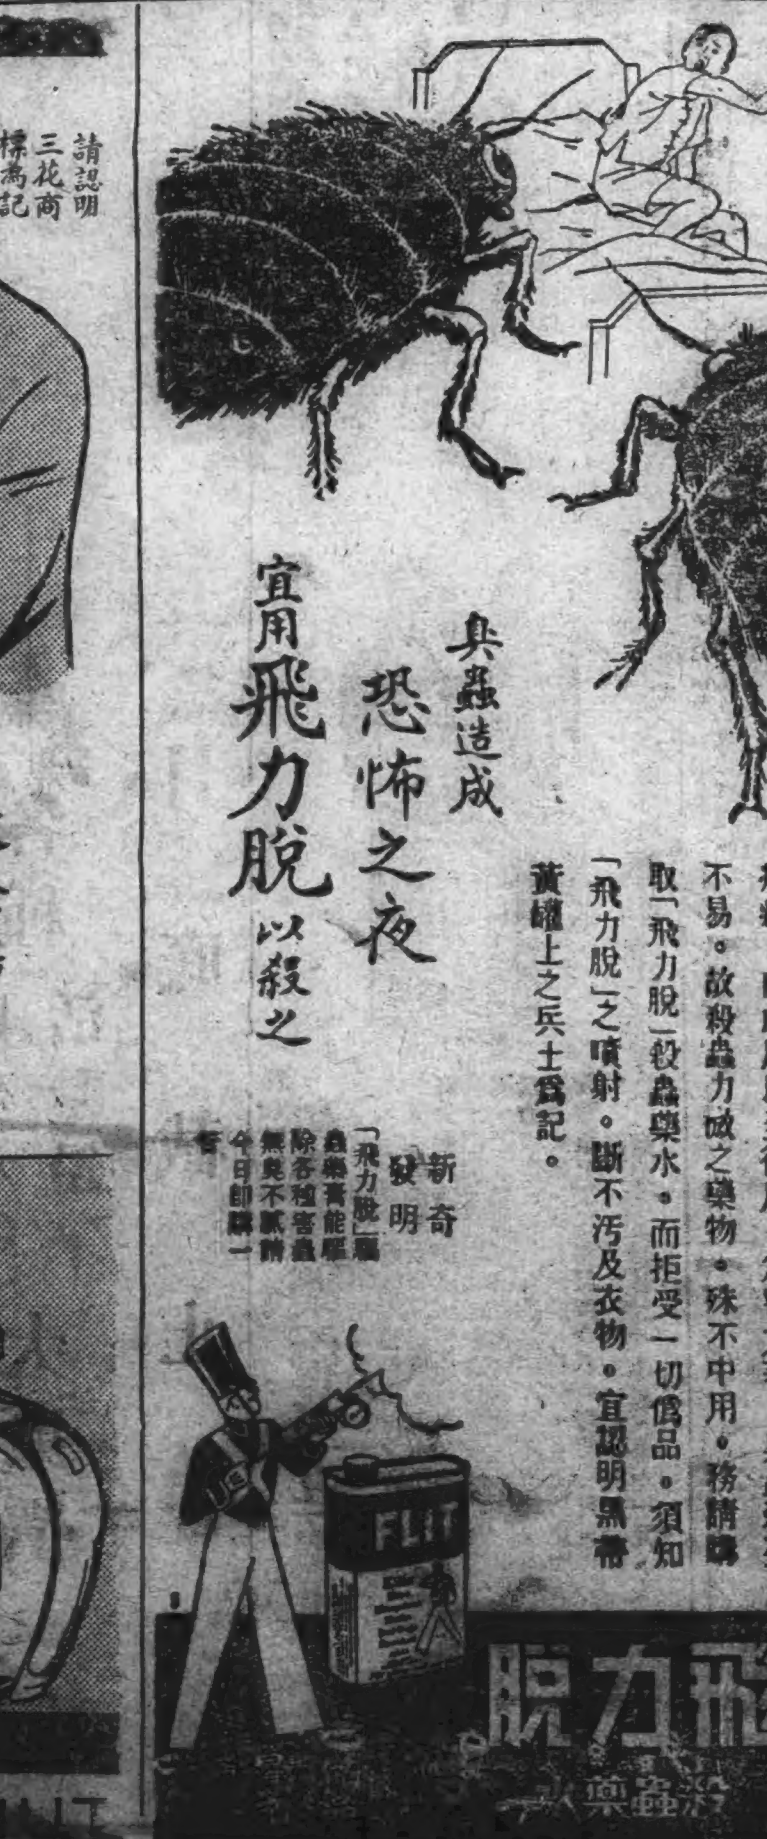 臭蟲造成
恐怖之夜
宜用飛力脫以殺之
不易。故殺蟲力微之藥物。殊不中用。務請購
取「飛力脫」殺蟲藥水。而拒受一切僞品。須知
「飛力脫」之噴射。斷不汚及衣物。宜認明黑帶
黃罐上之兵士爲記。
新奇
發明
「飛力脫」驅
蟲藥膏能驅
除各種害蟲
無臭不膩請
今日卽購一
FLIT
飛力脫
殺蟲藥水
請認明
三花商
標爲記